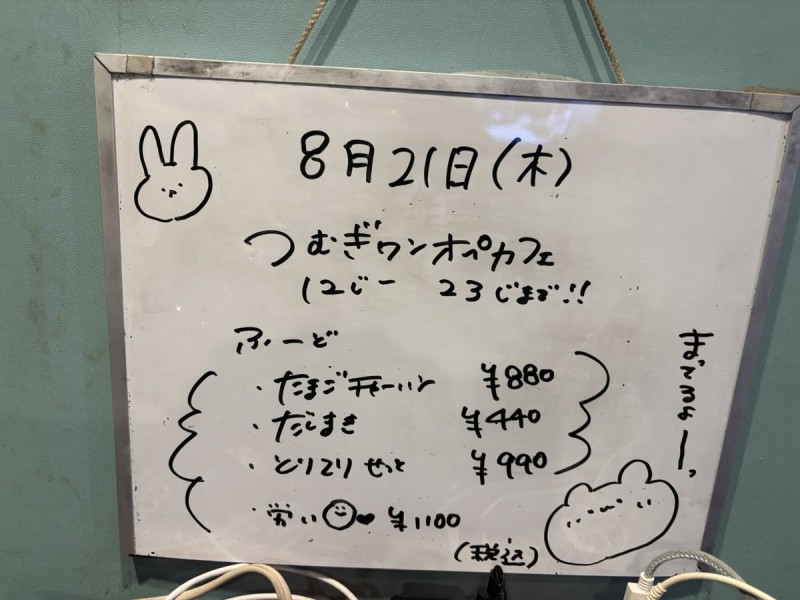 8月21日(木)
つむぎワンオペカフェ
12じー 23じまで!!
ふーど
・たまごチャーハン ¥880
・だしまき ¥440
・とりてりせっと ¥990
・労い ¥1100
(税込)
まってるよーっ